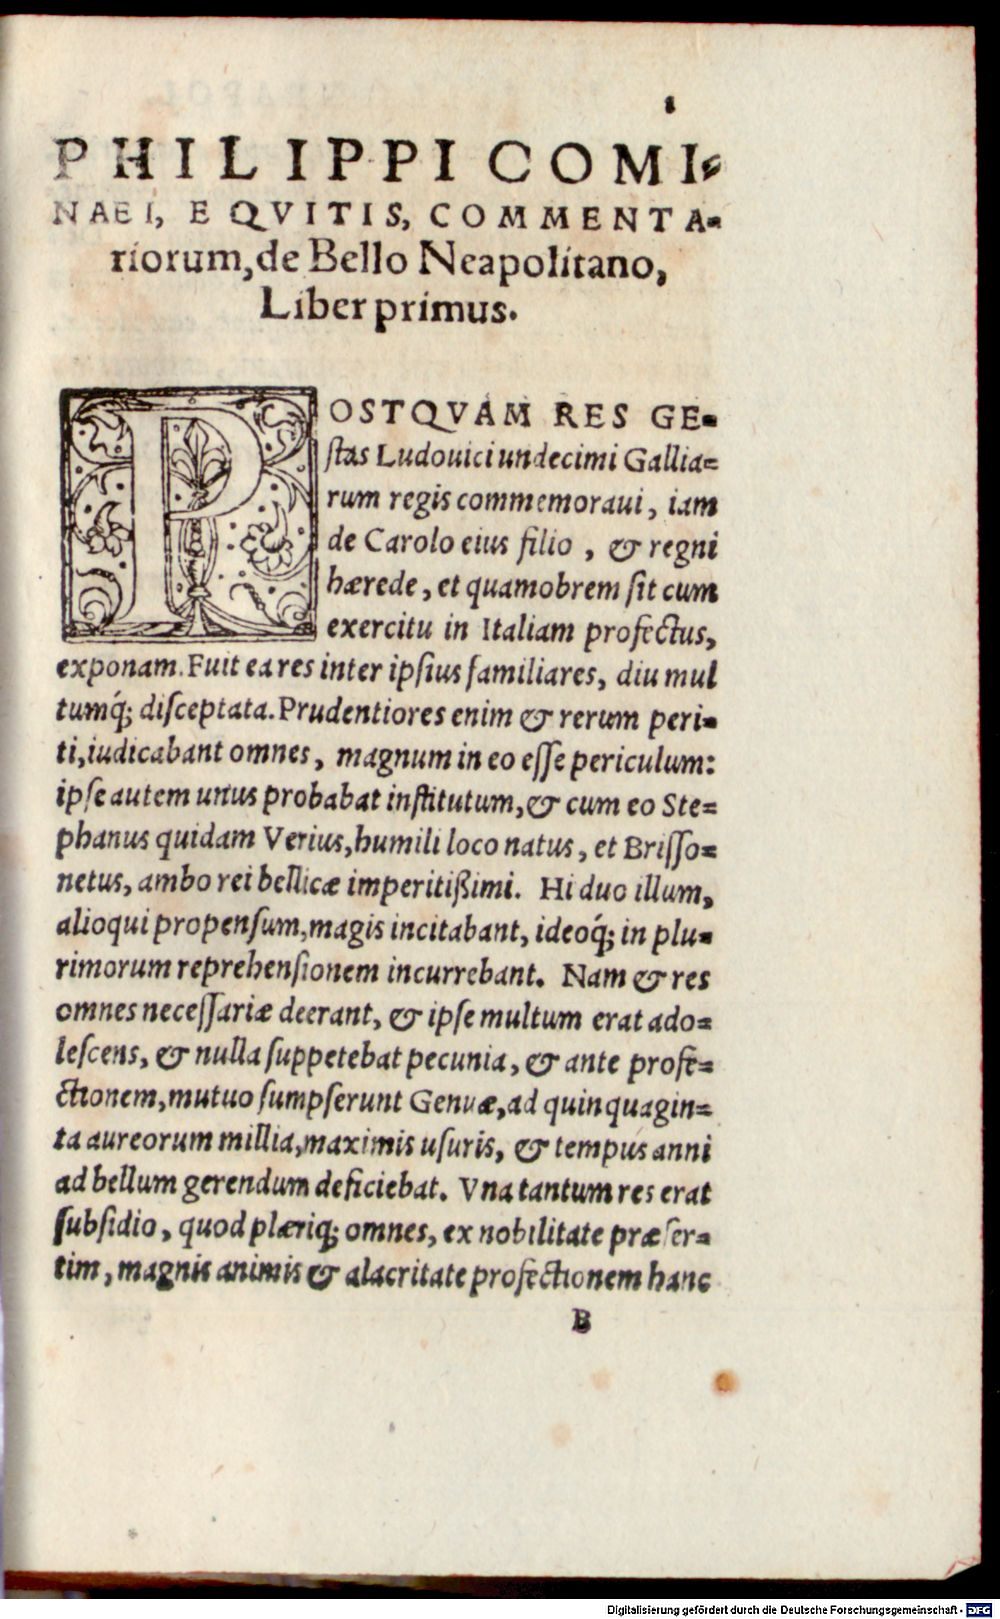 1
PHILIPPI COMI-
NAEI, EQVITIS, COMMENTA-
riorum, de Bello Neapolitano,
Liber primus.
POSTQVAM RES GE-
stas Ludouici undecimi Gallia-
rum regis commemoraui, iam
de Carolo eius filio, & regni
hærede, et quamobrem sit cum
exercitu in Italiam profectus,
exponam. Fuit ea res inter ipsius familiares, diu mul
tumq́; disceptata. Prudentiores enim & rerum peri-
ti, iudicabant omnes, magnum in eo esse periculum:
ipse autem unus probabat institutum, & cum eo Ste-
phanus quidam Verius, humili loco natus, et Brisso-
netus, ambo rei bellicæ imperitißimi. Hi duo illum,
alioqui propensum, magis incitabant, ideoq́; in plu-
rimorum reprehensionem incurrebant. Nam & res
omnes necessariæ deerant, & ipse multum erat ado-
lescens, & nulla suppetebat pecunia, & ante profe-
ctionem, mutuo sumpserunt Genuæ, ad quinquagin-
ta aureorum millia, maximis usuris, & tempus anni
ad bellum gerendum deficiebat. Vna tantum res erat
subsidio, quod plæriq; omnes, ex nobilitate præser-
tim, magnis animis & alacritate profectionem hanc
B
Digitalisierung gefördert durch die Deutsche Forschungsgemeinschaft - DFG